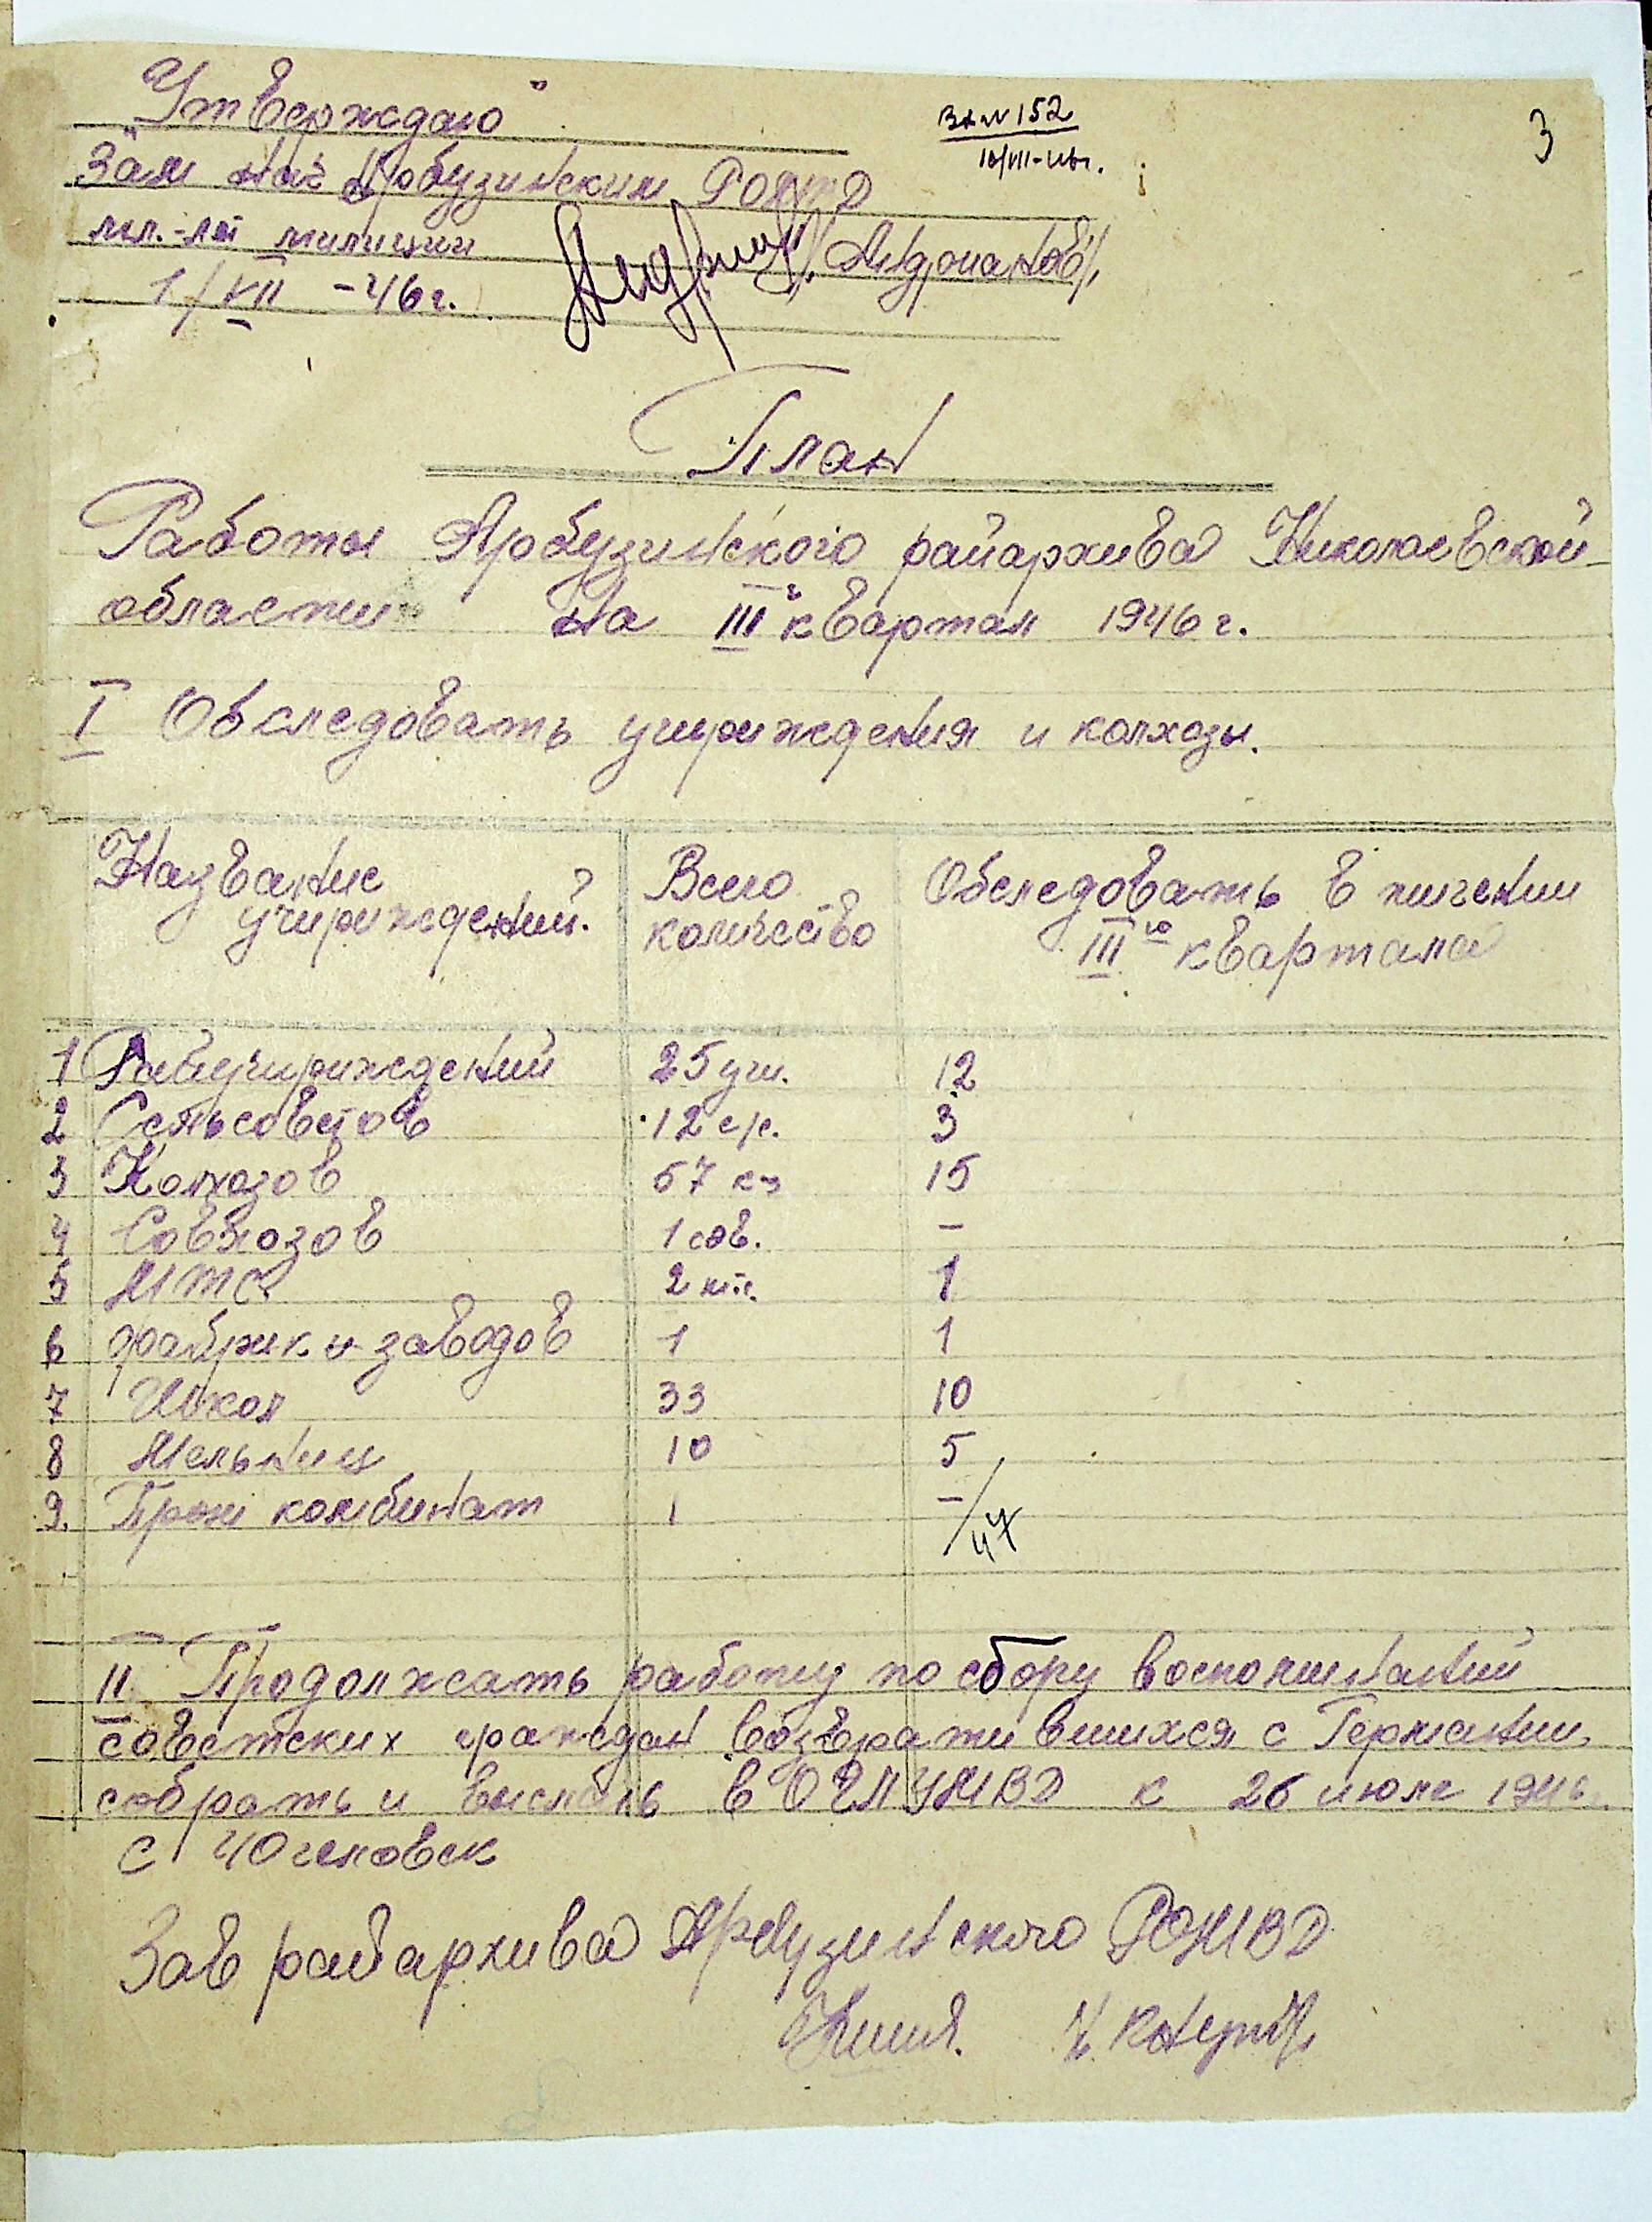 "Утверждаю"
Вх № 152
10/VII-46г.
3
Зам нач Арбузинским РОМВД
мл.-лт милиции /Андрианов/
1/VII -46г.
План
Работы Арбузинского райархива Николаевской
области на III й квартал 1946г.
I Обследовать учириждения и колхозы.
Название учириждений. Всего количество Обследовать в тичении III го квартала
1 Райучириждений 25 учи. 12
2 Сельсоветов 12 с/с. 3
3 Колхозов 57 кз 15
4 Совхозов 1 сов. –
5 МТС 2 мтс. 1
6 фабрик и заводов 1 1
7 Школ 33 10
8 Мельниц 10 5
9. Пром комбинат 1 –
/47
II Продолжать работу по сбору воспоминаний
советских граждан возвратившихся с Германии,
собрать и выслать в УМВД к 26 июля 1946.
с человек
Зав райархива Арбузинского РОМВД